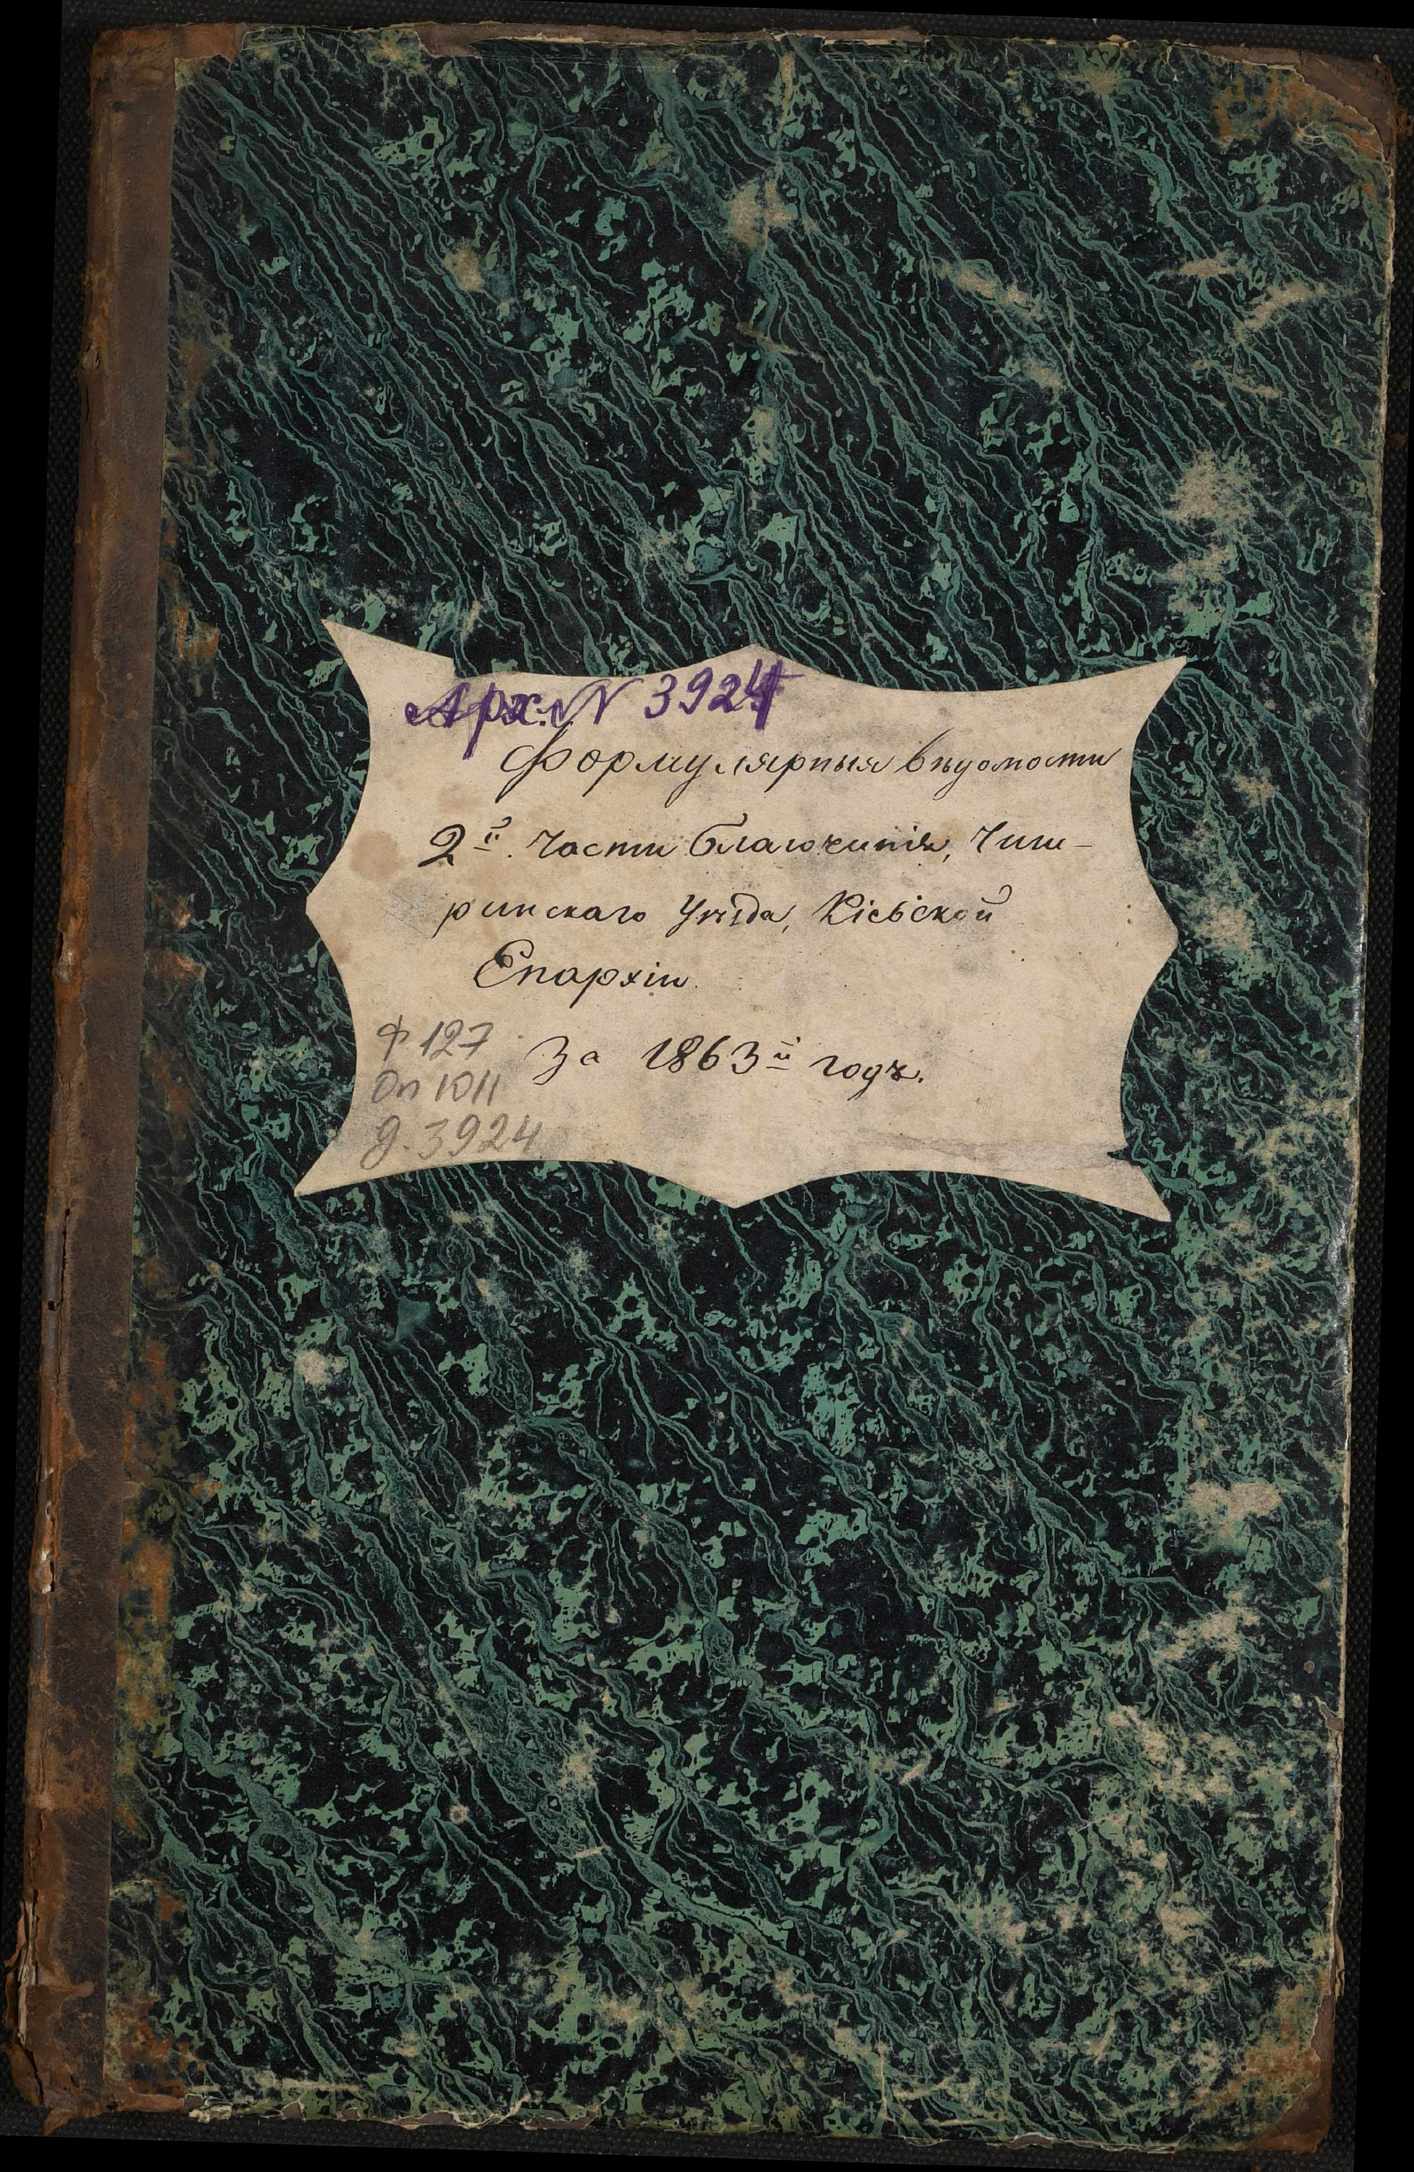 Арх. № 3924
Формулярныя вѣдомости
2й. Части благочинія, Чиги-
ринскаго Уѣзда, Кіевской
Епархіи
За 1863й годъ.
Ф 127
Оп 1011
д. 3924